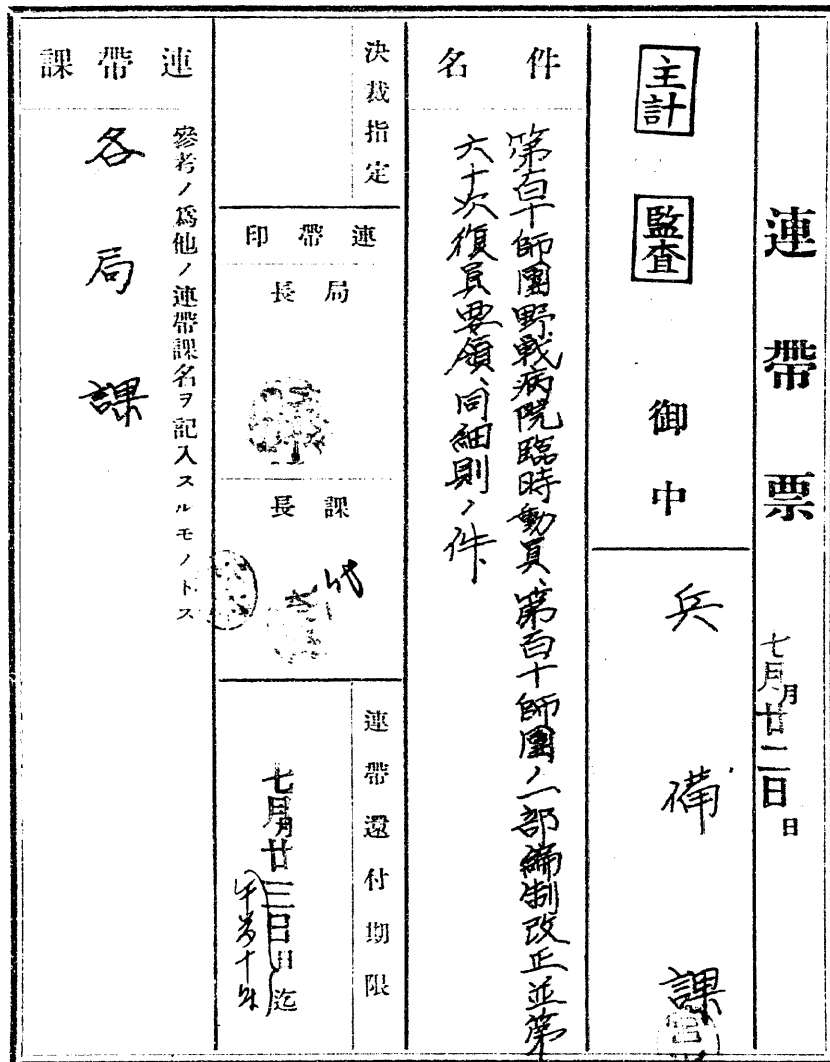 連帶票
七月月廿二日日
主計 監査 御中
兵備課
件名
第百十師團野戰病院臨時動員、第百十師團ノ一部編制改正並第
六十次復員要領、同細則ノ件
決裁指定
連帶印
局長
課長
代
連帶還付期限
七月月廿三日日迄
午前十時
連帶課
參考ノ爲他ノ連帶課名ヲ記入スルモノトス
各局課